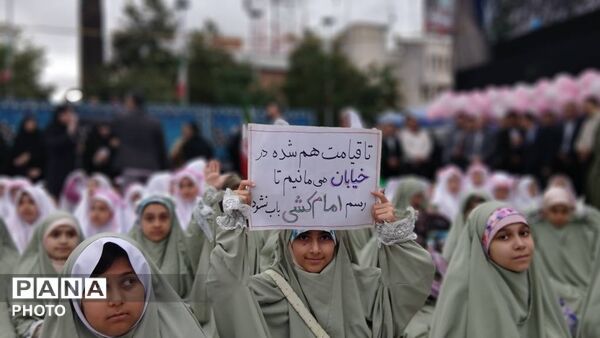 تا قیامت هم شده در
خیابان می‌مانیم تا
رسم امام‌کشی باب نشود
PANA
PHOTO